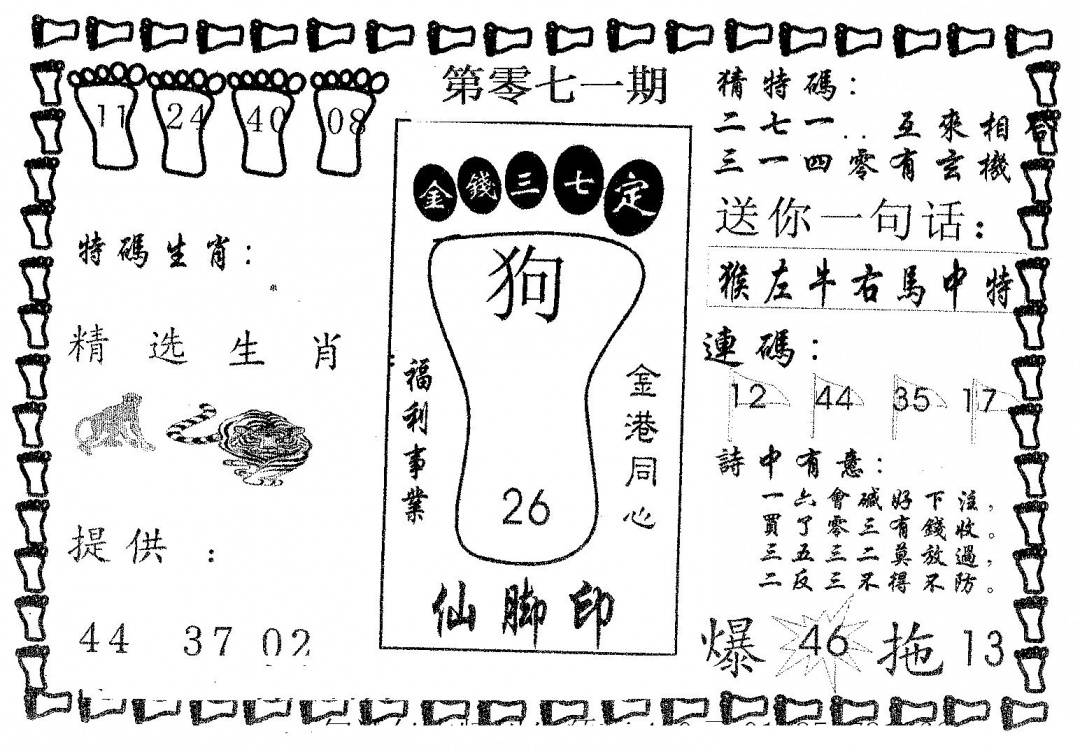 第零七一期
11 24 40 08
特碼生肖：
精选生肖：
提供：
44 37 02
金錢三七定
狗
26
福利事業
金港同心
仙脚印
猜特碼：
二七一..互來相合
三一四零有玄機
送你一句话：
猴左牛右馬中特
連碼：
12 44 35 17
詩中有意：
一六會碱好下注，
買了零三有錢收。
三五三二莫放過，
二反三不得不防。
爆 46 拖 13